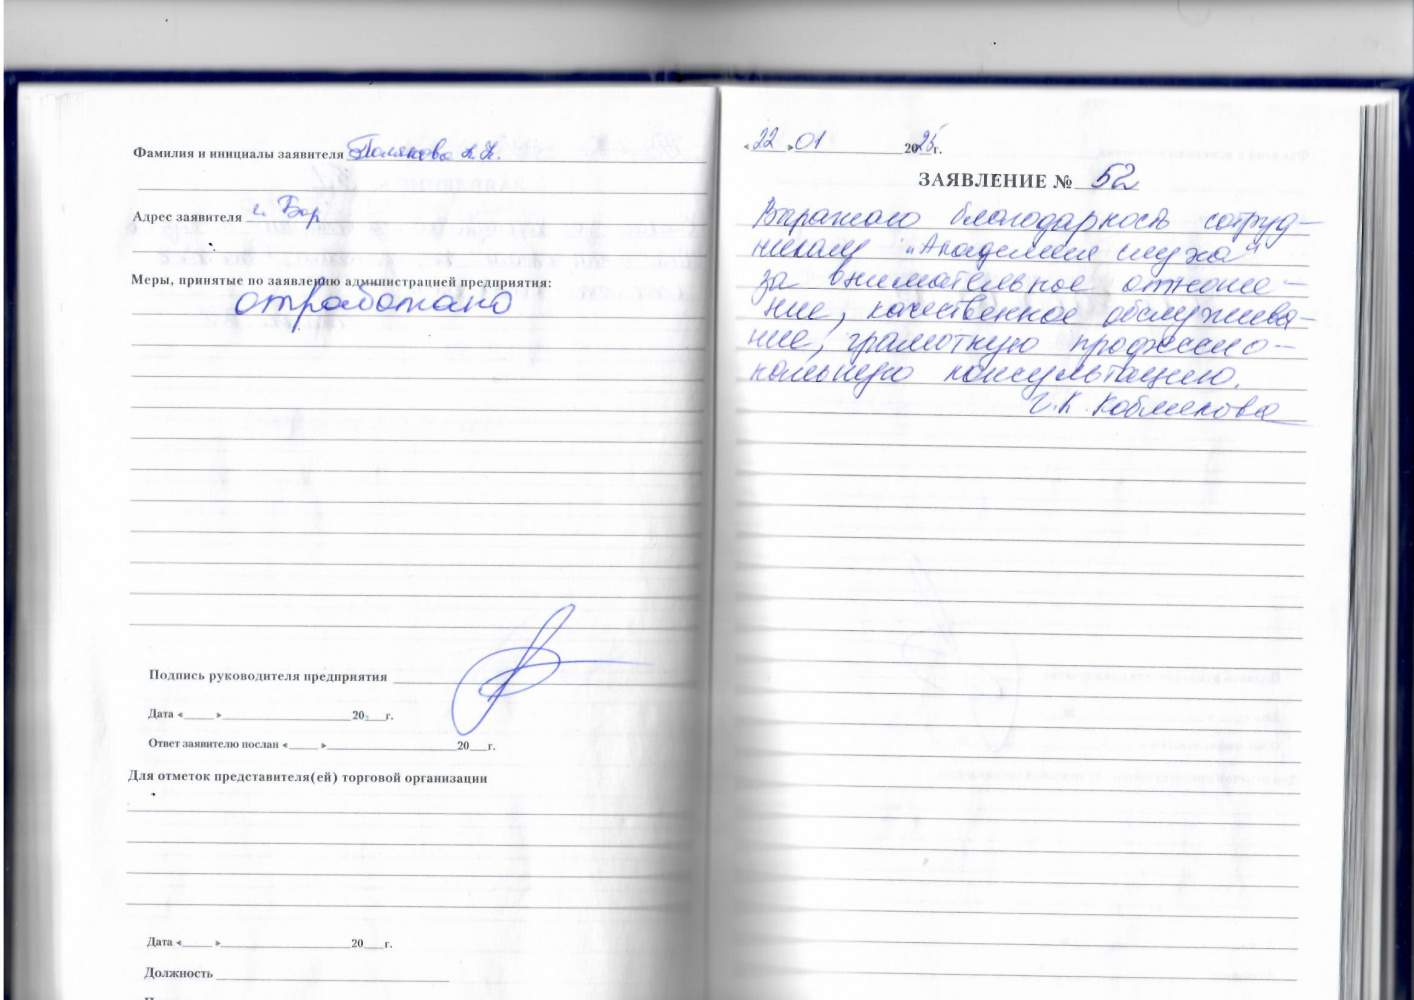 Фамилия и инициалы заявителя Полякова А.Н.
Адрес заявителя г. Бор
Меры, принятые по заявлению администрацией предприятия:
отработано
Подпись руководителя предприятия
Дата «____» ____________ 20___г.
Ответ заявителю послан «____» ____________ 20___г.
Для отметок представителя(ей) торговой организации
Дата «____» ____________ 20___г.
Должность
«22» 01 2025г.
ЗАЯВЛЕНИЕ № 52
Выражаю благодарность сотруд-
никам "Академии слуха"
за внимательное отноше-
ние, качественное обслужива-
ние, грамотную профессио-
нальную консультацию.
Г.К.